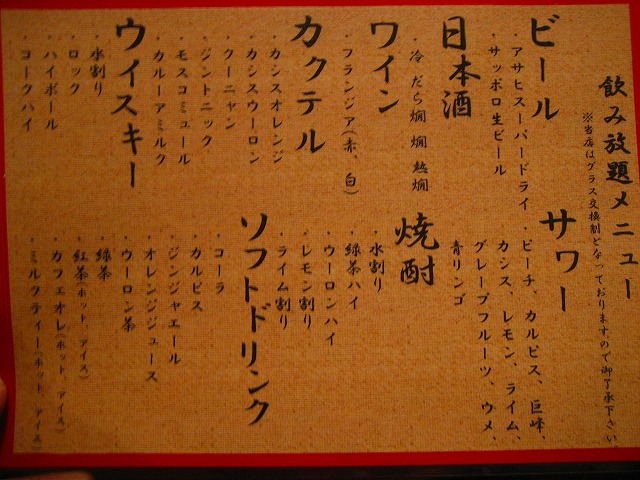 飲み放題メニュー
※当店はグラス交換制となっておりますので御了承下さい
ビール
・アサヒスーパードライ
・サッポロ生ビール
日本酒
・冷 だら燗 燗 熱燗
ワイン
・フランジア(赤、白)
カクテル
・カシスオレンジ
・カシスウーロン
・クーニャン
・ジントニック
・モスコミュール
・カルーアミルク
ウイスキー
・水割り
・ロック
・ハイボール
・コークハイ
サワー
・ピーチ、カルピス、巨峰、
カシス、レモン、ライム、
グレープフルーツ、ウメ、
青リンゴ
焼酎
・水割り
・緑茶ハイ
・ウーロンハイ
・レモン割り
・ライム割り
ソフトドリンク
・コーラ
・カルピス
・ジンジャエール
・オレンジジュース
・ウーロン茶
・緑茶
・紅茶(ホット、アイス)
・カフェオレ(ホット、アイス)
・ミルクティー(ホット、アイス)